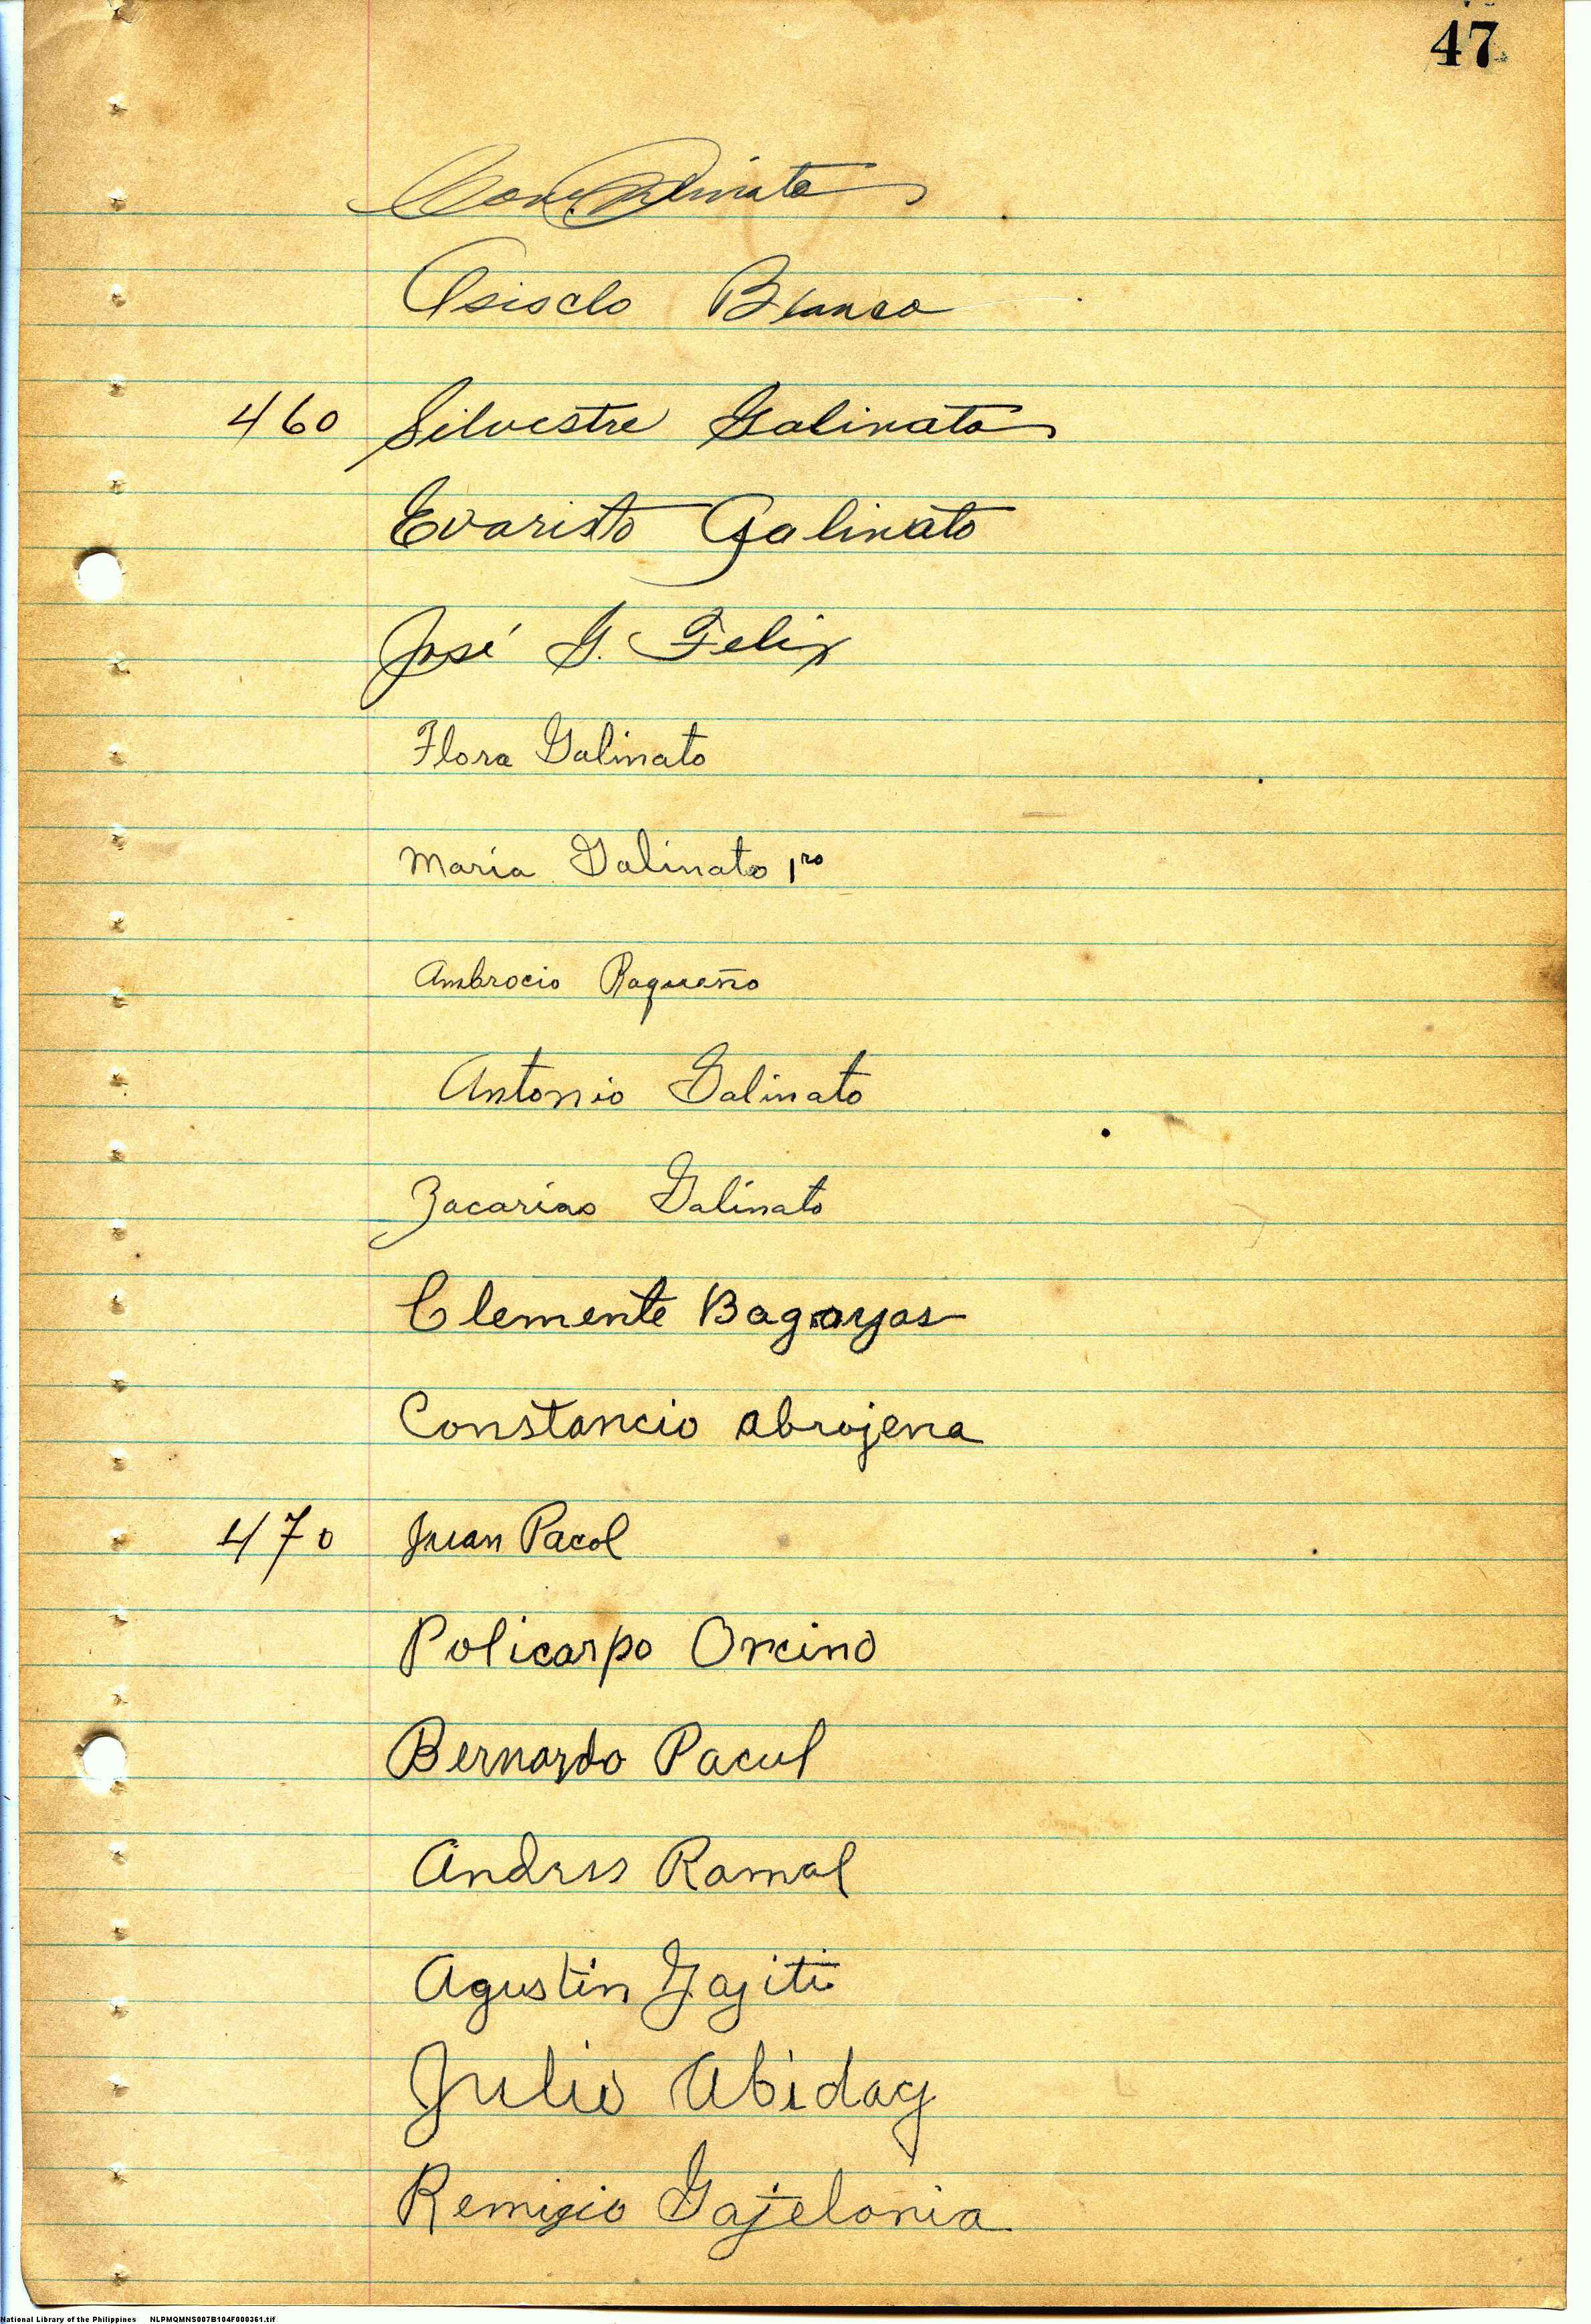 47
Asisclo Blanco
460 Silvestre Galinato
Evaristo Galinato
José G. Felix
Flora Galinato
Maria Galinato 1ro
Ambrocio Raqueño
Antonio Galinato
Zacarias Galinato
Clemente Bagayas
Constancio abrojena
470 Juan Pacol
Policarpo Orcino
Bernardo Pacul
Andres Ramal
Agustin Gajiti
Julio Abidag
Remigio Gajelonia
National Library of the Philippines NLPMQMNS007B104F000361.tif